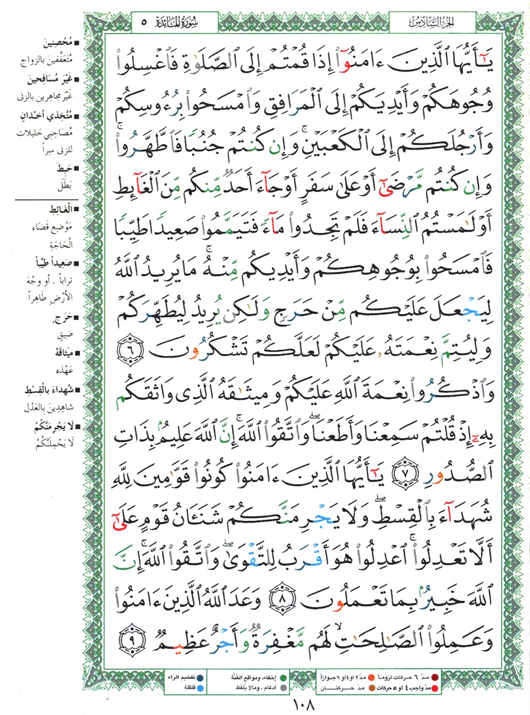 الجزء السادس
سورة المائدة ٥
يَٰٓأَيُّهَا ٱلَّذِينَ ءَامَنُوٓا۟ إِذَا قُمْتُمْ إِلَى ٱلصَّلَوٰةِ فَٱغْسِلُوا۟
وُجُوهَكُمْ وَأَيْدِيَكُمْ إِلَى ٱلْمَرَافِقِ وَٱمْسَحُوا۟ بِرُءُوسِكُمْ
وَأَرْجُلَكُمْ إِلَى ٱلْكَعْبَيْنِ ۚ وَإِن كُنتُمْ جُنُبًا فَٱطَّهَّرُوا۟ ۚ
وَإِن كُنتُم مَّرْضَىٰٓ أَوْ عَلَىٰ سَفَرٍ أَوْ جَآءَ أَحَدٌ مِّنكُم مِّنَ ٱلْغَآئِطِ
أَوْ لَٰمَسْتُمُ ٱلنِّسَآءَ فَلَمْ تَجِدُوا۟ مَآءً فَتَيَمَّمُوا۟ صَعِيدًا طَيِّبًا
فَٱمْسَحُوا۟ بِوُجُوهِكُمْ وَأَيْدِيكُم مِّنْهُ ۚ مَا يُرِيدُ ٱللَّهُ
لِيَجْعَلَ عَلَيْكُم مِّنْ حَرَجٍ وَلَٰكِن يُرِيدُ لِيُطَهِّرَكُمْ
وَلِيُتِمَّ نِعْمَتَهُۥ عَلَيْكُمْ لَعَلَّكُمْ تَشْكُرُونَ ٦
وَٱذْكُرُوا۟ نِعْمَةَ ٱللَّهِ عَلَيْكُمْ وَمِيثَٰقَهُ ٱلَّذِى وَاثَقَكُم
بِهِۦٓ إِذْ قُلْتُمْ سَمِعْنَا وَأَطَعْنَا ۖ وَٱتَّقُوا۟ ٱللَّهَ ۚ إِنَّ ٱللَّهَ عَلِيمٌۢ بِذَاتِ
ٱلصُّدُورِ ٧ يَٰٓأَيُّهَا ٱلَّذِينَ ءَامَنُوا۟ كُونُوا۟ قَوَّٰمِينَ لِلَّهِ
شُهَدَآءَ بِٱلْقِسْطِ ۖ وَلَا يَجْرِمَنَّكُمْ شَنَـَٔانُ قَوْمٍ عَلَىٰٓ
أَلَّا تَعْدِلُوا۟ ۚ ٱعْدِلُوا۟ هُوَ أَقْرَبُ لِلتَّقْوَىٰ ۖ وَٱتَّقُوا۟ ٱللَّهَ ۚ إِنَّ
ٱللَّهَ خَبِيرٌۢ بِمَا تَعْمَلُونَ ٨ وَعَدَ ٱللَّهُ ٱلَّذِينَ ءَامَنُوا۟
وَعَمِلُوا۟ ٱلصَّٰلِحَٰتِ ۙ لَهُم مَّغْفِرَةٌ وَأَجْرٌ عَظِيمٌ ٩
مُحْصِنِينَ
مُتَعَفِّفِينَ بِالزواج
غَيْرَ مُسَافِحِينَ
غَيْرَ مجاهِرين بالزنى
مُتَّخِذِي أَخْدَانٍ
مُصَاحِبي خليلات
للزنى سراً
حَبِطَ
بَطَلَ
الْغَائِطِ
مَوْضِعِ قضَاء
الْحَاجَةِ
صَعِيداً طَيِّباً
تراباً . أو وجْهَ
الأرْضِ طَاهِراً
حَرَجٍ
ضِيقٍ
مِيثَاقَهُ
عَهْدَه
شُهَدَاءَ بِالْقِسْطِ
شاهِدِينَ بالعَدْل
لَا يَجْرِمَنَّكُمْ
لَا يَحْمِلَنَّكُمْ
مدّ ٦ حركات لزوماً
مدّ ٢ أو ٤ أو ٦ جوازاً
إخفاء، ومواقع الغُنَّة
تفخيم الراء
مدّ واجب ٤ أو ٥ حركات
مدّ حركتان
إدغام ، وما لا يُلفظ
قلقلة
١٠٨